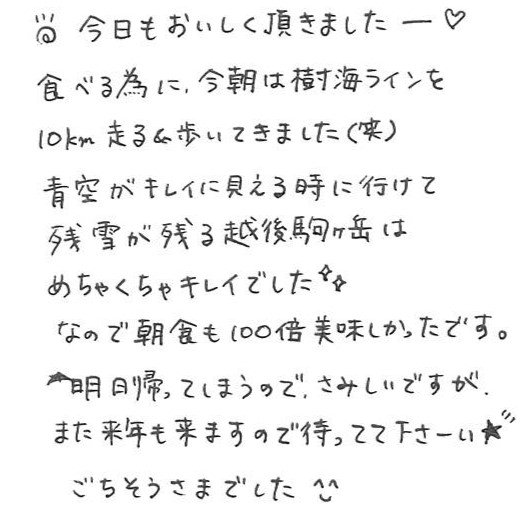 今日もおいしく頂きましたー♡
食べる為に、今朝は樹海ラインを
10km走る&歩いてきました(笑)
青空がキレイに見える時に行けて
残雪が残る越後駒ヶ岳は
めちゃくちゃキレイでした
なので朝食も100倍美味しかったです。
明日帰ってしまうので、さみしいですが、
また来年も来ますので待ってて下さーい★
ごちそうさまでした